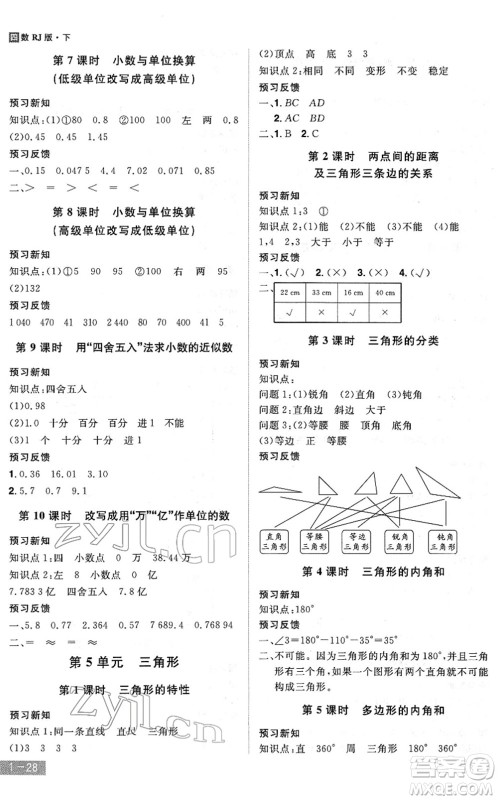 四数 RJ 版·下
第 7 课时 小数与单位换算
(低级单位改写成高级单位)
预习新知
知识点:(1)①80 80 ②100 左 两 0.8
(2)0.45 0.45 4.5
预习反馈
一、0.15 0.047 5 4.6 3.08
二、> = < =
第 8 课时 小数与单位换算
(高级单位改写成低级单位)
预习新知
知识点:(1)①5 90 95 ②100 右 两 95
(2)132
预习反馈
1 040 40 41 5 80 470 1 320 315
第 9 课时 用“四舍五入”法求小数的近似数
预习新知
知识点:四舍五入
(1)0.98
(2)1.0 十分 百分 十分 进1 不能
(3)1 一 十分 不
预习反馈
1. 0.36 10.00 3.0 4.0
2. 5.7 0.7 9.8
第 10 课时 改写成用“万”“亿”作单位的数
预习新知
知识点 1:四 小数点 0 万 38.44 万
知识点 2:八 8 小数点 0 亿
7.783 3 亿 7.8 亿
预习反馈
一、5.8 0.77 0.54 7.689 4 0.768 94
二、= ≈ = ≈
第 5 单元 三角形
第 1 课时 三角形的特性
预习新知
知识点 1:同一条直线 直尺 三角尺
(1)3 3 3 3
1-28
(2)顶点 高 底
知识点 2:相同 不同 变形 不变 稳定
预习反馈
一、1. BC AD
2. AC BD
二、1. B 2. C
第 2 课时 两点间的距离
及三角形三条边的关系
预习新知
知识点 1:3 ①
知识点 2:(1)能 (2)不能 (3)不能 (4)能
1,4 2,3 大于 小于 等于 大于
预习反馈
一、1. (√) 2. (×) 3. (×) 4. (√)
二、
22 cm 33 cm 16 cm 40 cm
√ × √ ×
第 3 课时 三角形的分类
预习新知
知识点:
问题 1:(1)锐角 (2)直角 (3)钝角
问题 2:直角边 斜边 直角边
问题 3:(2)等腰 腰 底 顶角 底角
(3)等边 正 等腰
预习反馈
直角三角形 等腰三角形 等边三角形 锐角三角形 钝角三角形
第 4 课时 三角形的内角和
预习新知
知识点:180° 180° 180°
预习反馈
一、∠3=180°-90°-55°=35°
二、不可能。因为三角形的内角和为 180°,直
角为 90°,如果一个图形有两个直角就不可能
构成三角形。
第 5 课时 多边形的内角和
预习新知
知识点:直 360° 周 360° 180° 360°